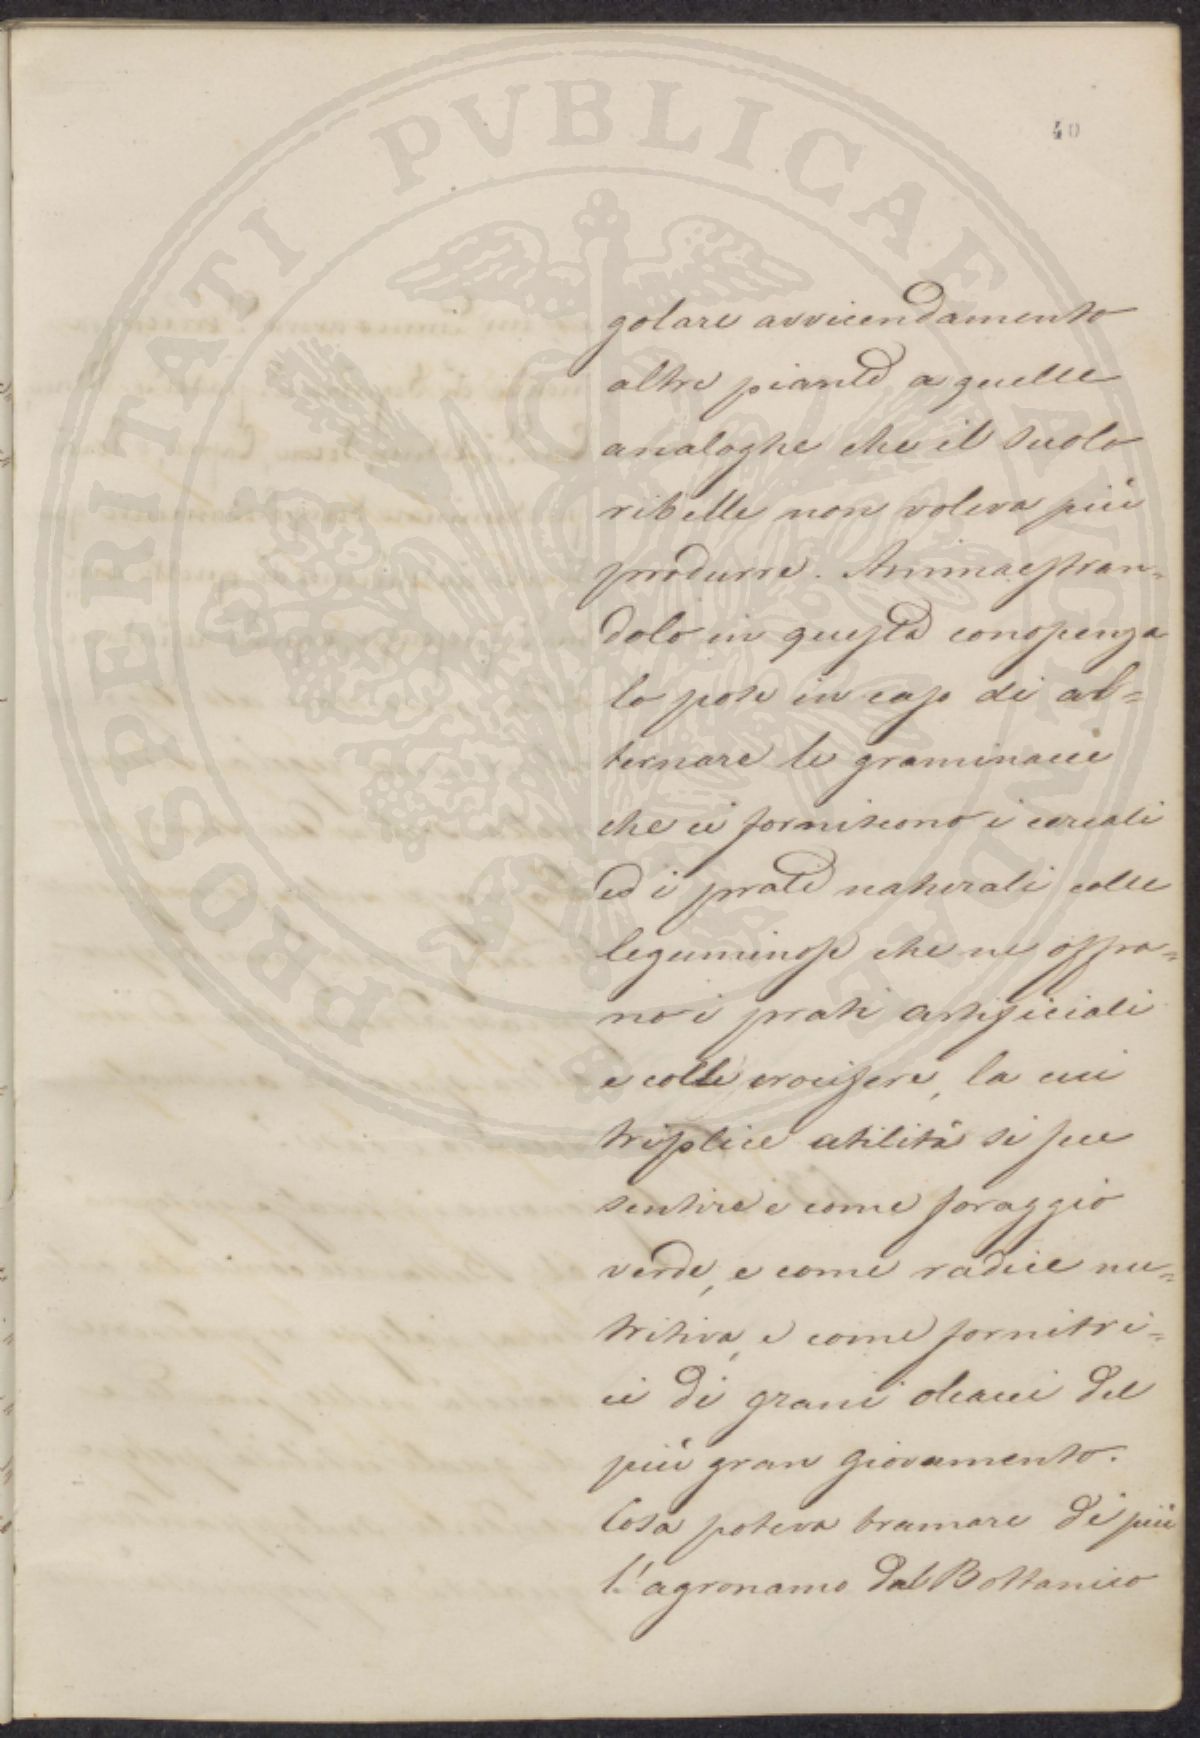 40
golare avvicendamento
altre piante a quelle
analoghe che il suolo
ribelle non voleva più
produrre. Ammaestran=
dolo in questa conoscenza
lo pose in caso di al=
ternare le graminacee
che ci forniscono i cereali
ed i prati naturali colle
leguminose che ne offro=
no i prati artificiali
e colle crocifere, la cui
triplice utilità si fece
sentire e come foraggio
verde, e come radice nu=
tritiva, e come fornitri=
ci di grani oleacei del
più gran giovamento.
Cosa poteva bramare di più
l'agronamo dal Bottanico
PROSPERITATI PVBLICAE AVGENDAE